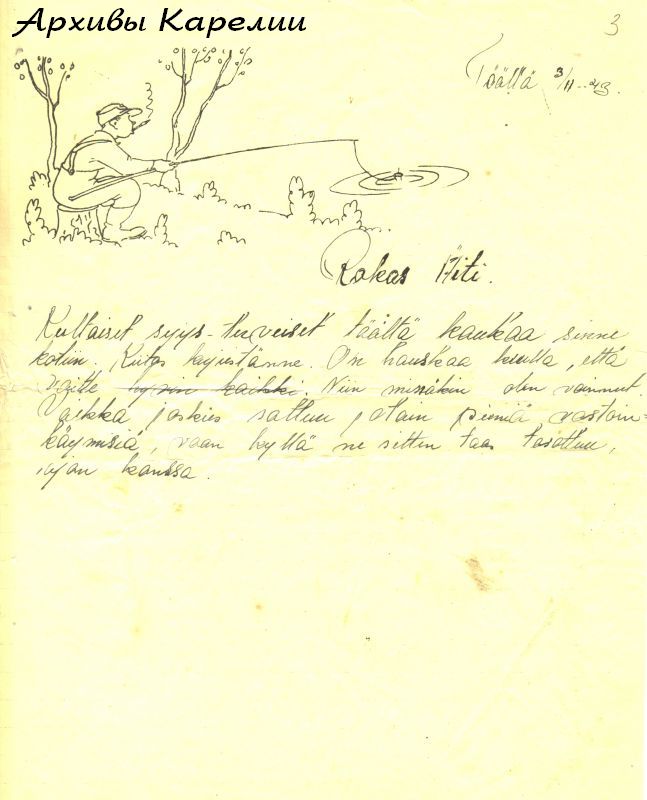 Архивы Карелии
3
Täältä 3/11-43.
Rakas Äiti.
Kultaiset syys-terveiset täältä kaukaa sinne
kotiin. Kiitos kirjestänne. On hauskaa kuulla, että
voitte hyvin kaikki. Niin minäkin olen voinnut.
Vaikka joskus sattuu jotain pieniä vastoin=
käymisiä, vaan kyllä ne sitten taas tasottuu,
ajan kanssa.